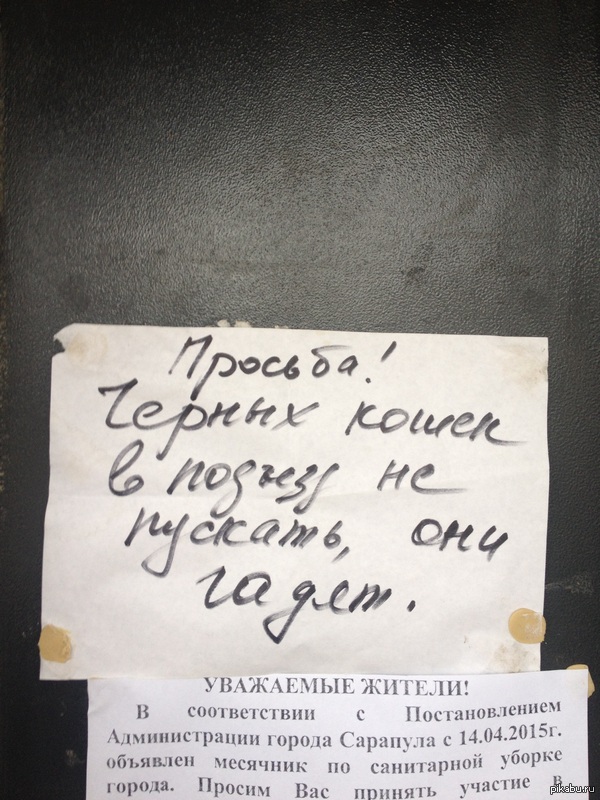 Просьба!
Черных кошек
в подъезд не
пускать, они
гадят.
УВАЖАЕМЫЕ ЖИТЕЛИ!
В соответствии с Постановлением
Администрации города Сарапула с 14.04.2015г.
объявлен месячник по санитарной уборке
города. Просим Вас принять участие в
pikabu.ru